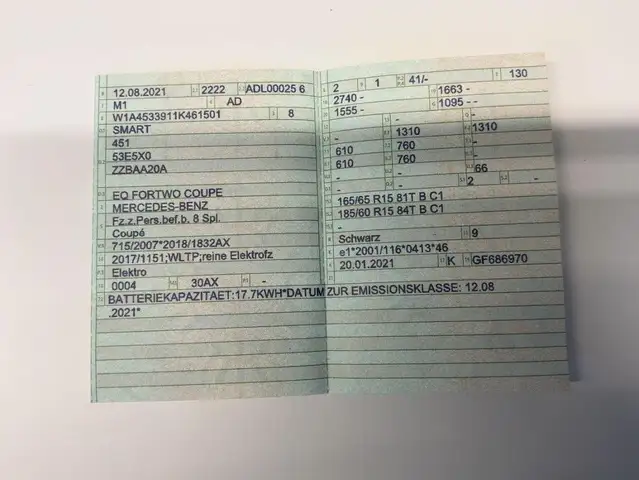 12.08.2021 2222 ADL00025 6
M1 AD
W1A4533911K461501 8
SMART
451
53E5X0
ZZBAA20A
EQ FORTWO COUPE
MERCEDES-BENZ
Fz.z.Pers.bef.b. 8 Spl.
Coupé
715/2007*2018/1832AX
2017/1151;WLTP;reine Elektrofz
Elektro
0004 30AX -
BATTERIEKAPAZITAET:17.7KWH*DATUM ZUR EMISSIONSKLASSE: 12.08
.2021*
2 1 41/- 130
2740 - 1663 -
1555 - 1095 - -
- -
- 1310 1310
610 760 -
610 760 -
- - 66
- - 2 -
165/65 R15 81T B C1
185/60 R15 84T B C1
-
Schwarz 9
e1*2001/116*0413*46
20.01.2021 K GF686970